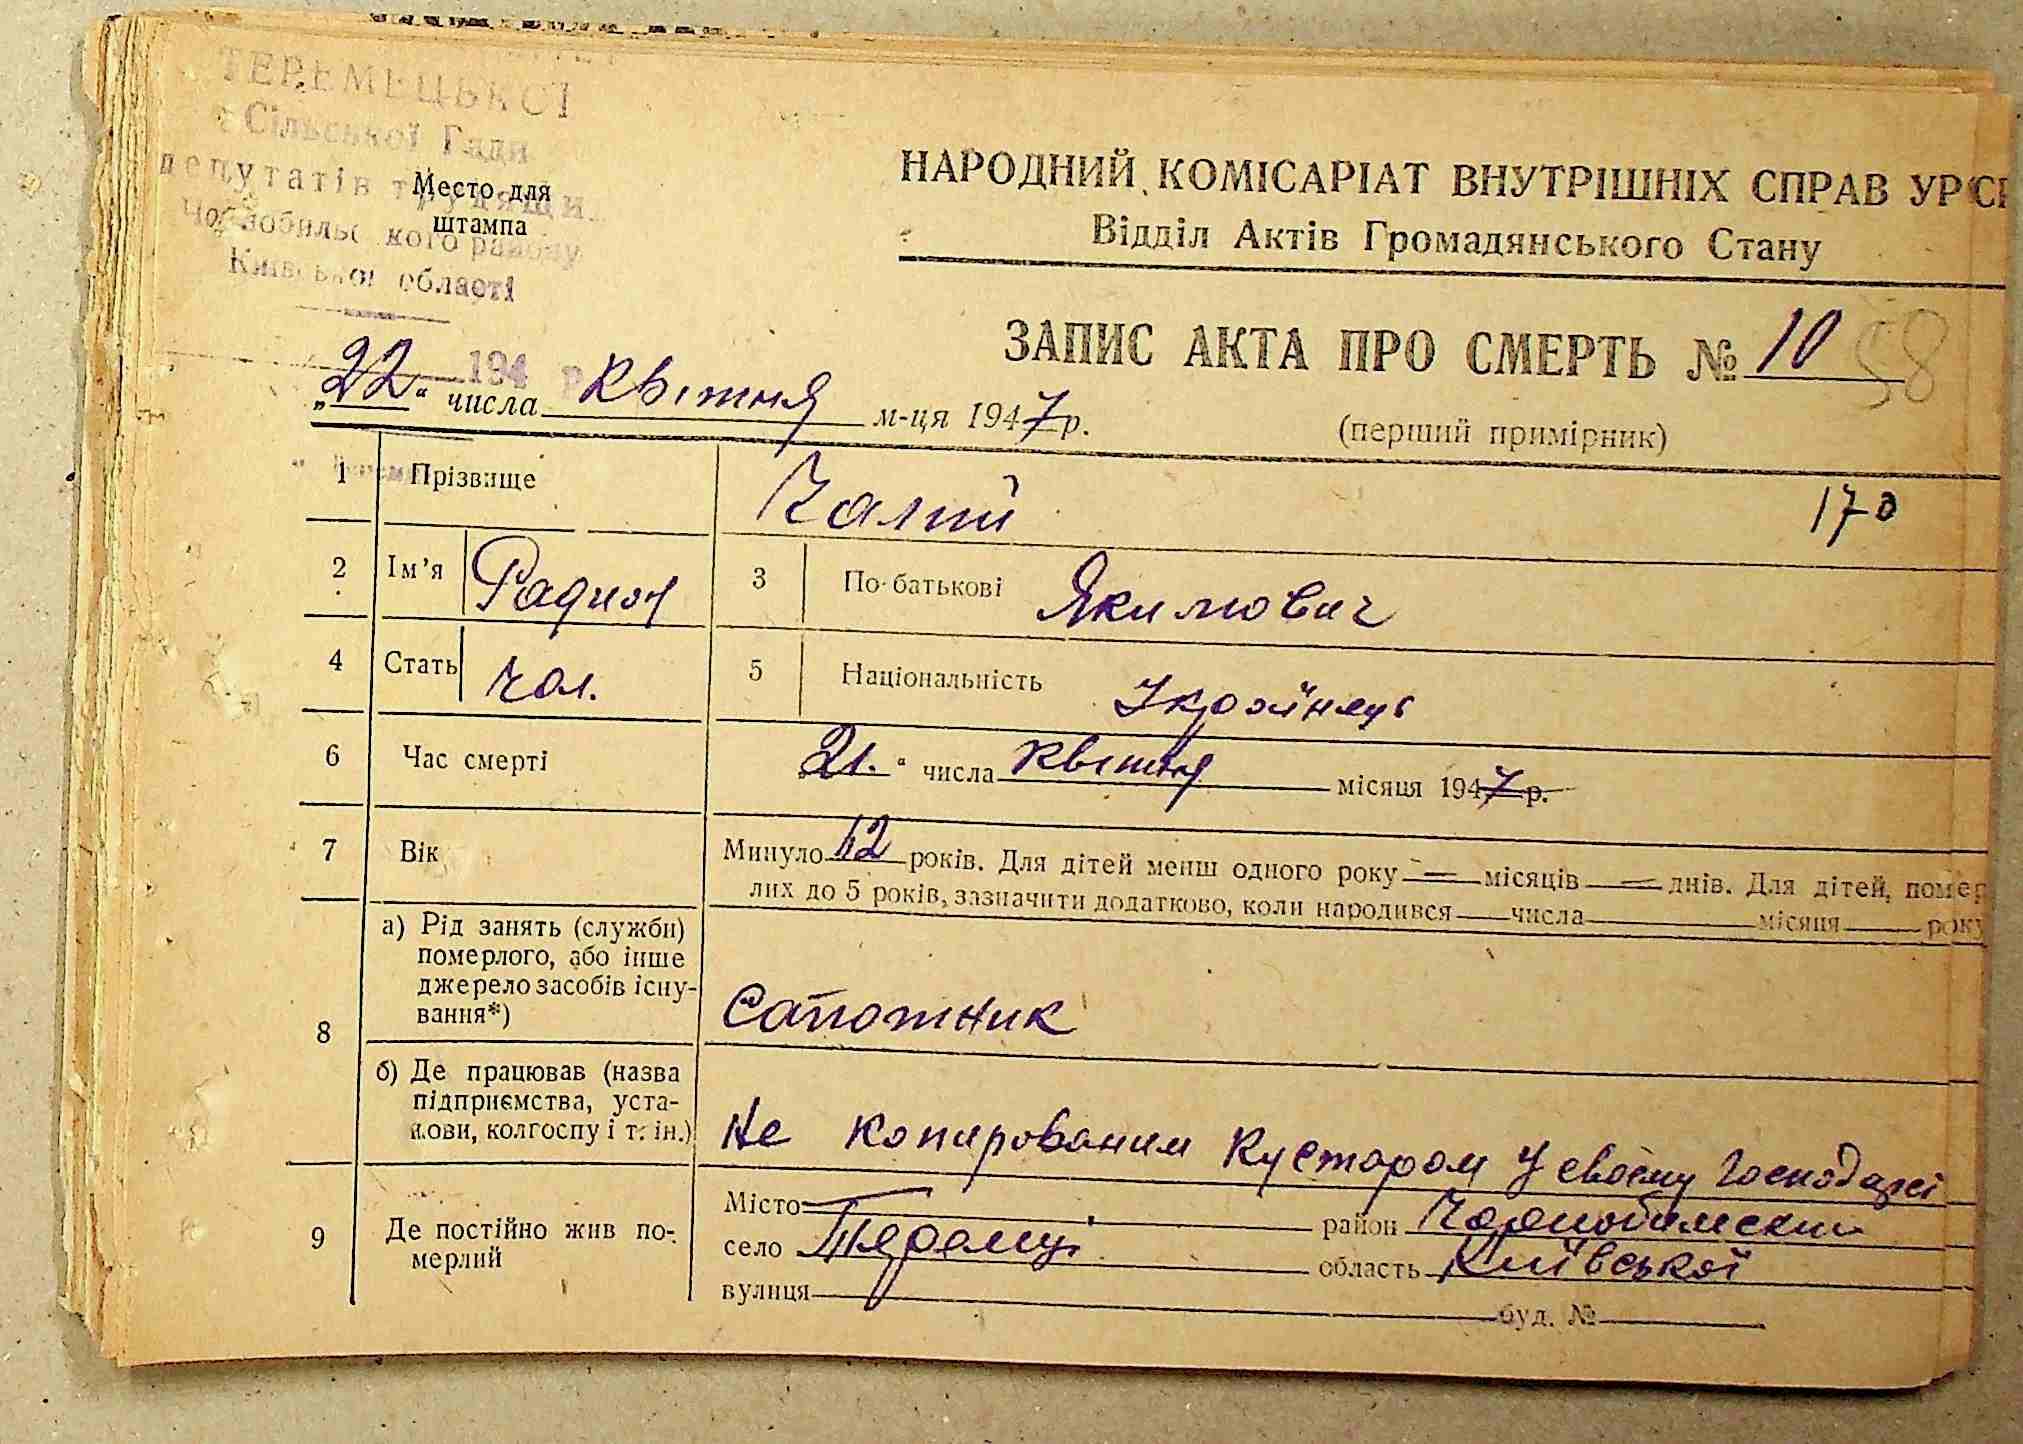 ТЕРЕМЕЦЬКОЇ
Сільської Ради
депутатів трудящи
Чорнобильського району
Київської області
Место для
штампа
194 р
НАРОДНИЙ КОМІСАРІАТ ВНУТРІШНІХ СПРАВ УРСР
Відділ Актів Громадянського Стану
ЗАПИС АКТА ПРО СМЕРТЬ № 10 58
„22“ числа Квітня м-ця 1947 р.
(перший примірник)
1 Прізвище Чалий 170
2 Ім'я Радион 3 По-батькові Якимович
4 Стать чол. 5 Національність Українець
6 Час смерті 21.“ числа Квітня місяця 1947 р.
7 Вік Минуло 12 років. Для дітей менш одного року — місяців — днів. Для дітей, помер
лих до 5 років, зазначити додатково, коли народився числа місяця року
8 а) Рід занять (служби)
померлого, або інше
джерело засобів існу-
вання*)
Сапожник
б) Де працював (назва
підприємства, уста-
нови, колгоспу і т. ін.)
Не копированим Кустаром У своєму Господарсі
9 Де постійно жив по-
мерлий
Місто район Чорнобилмский
село Теремці область Київської
вулиця буд. №